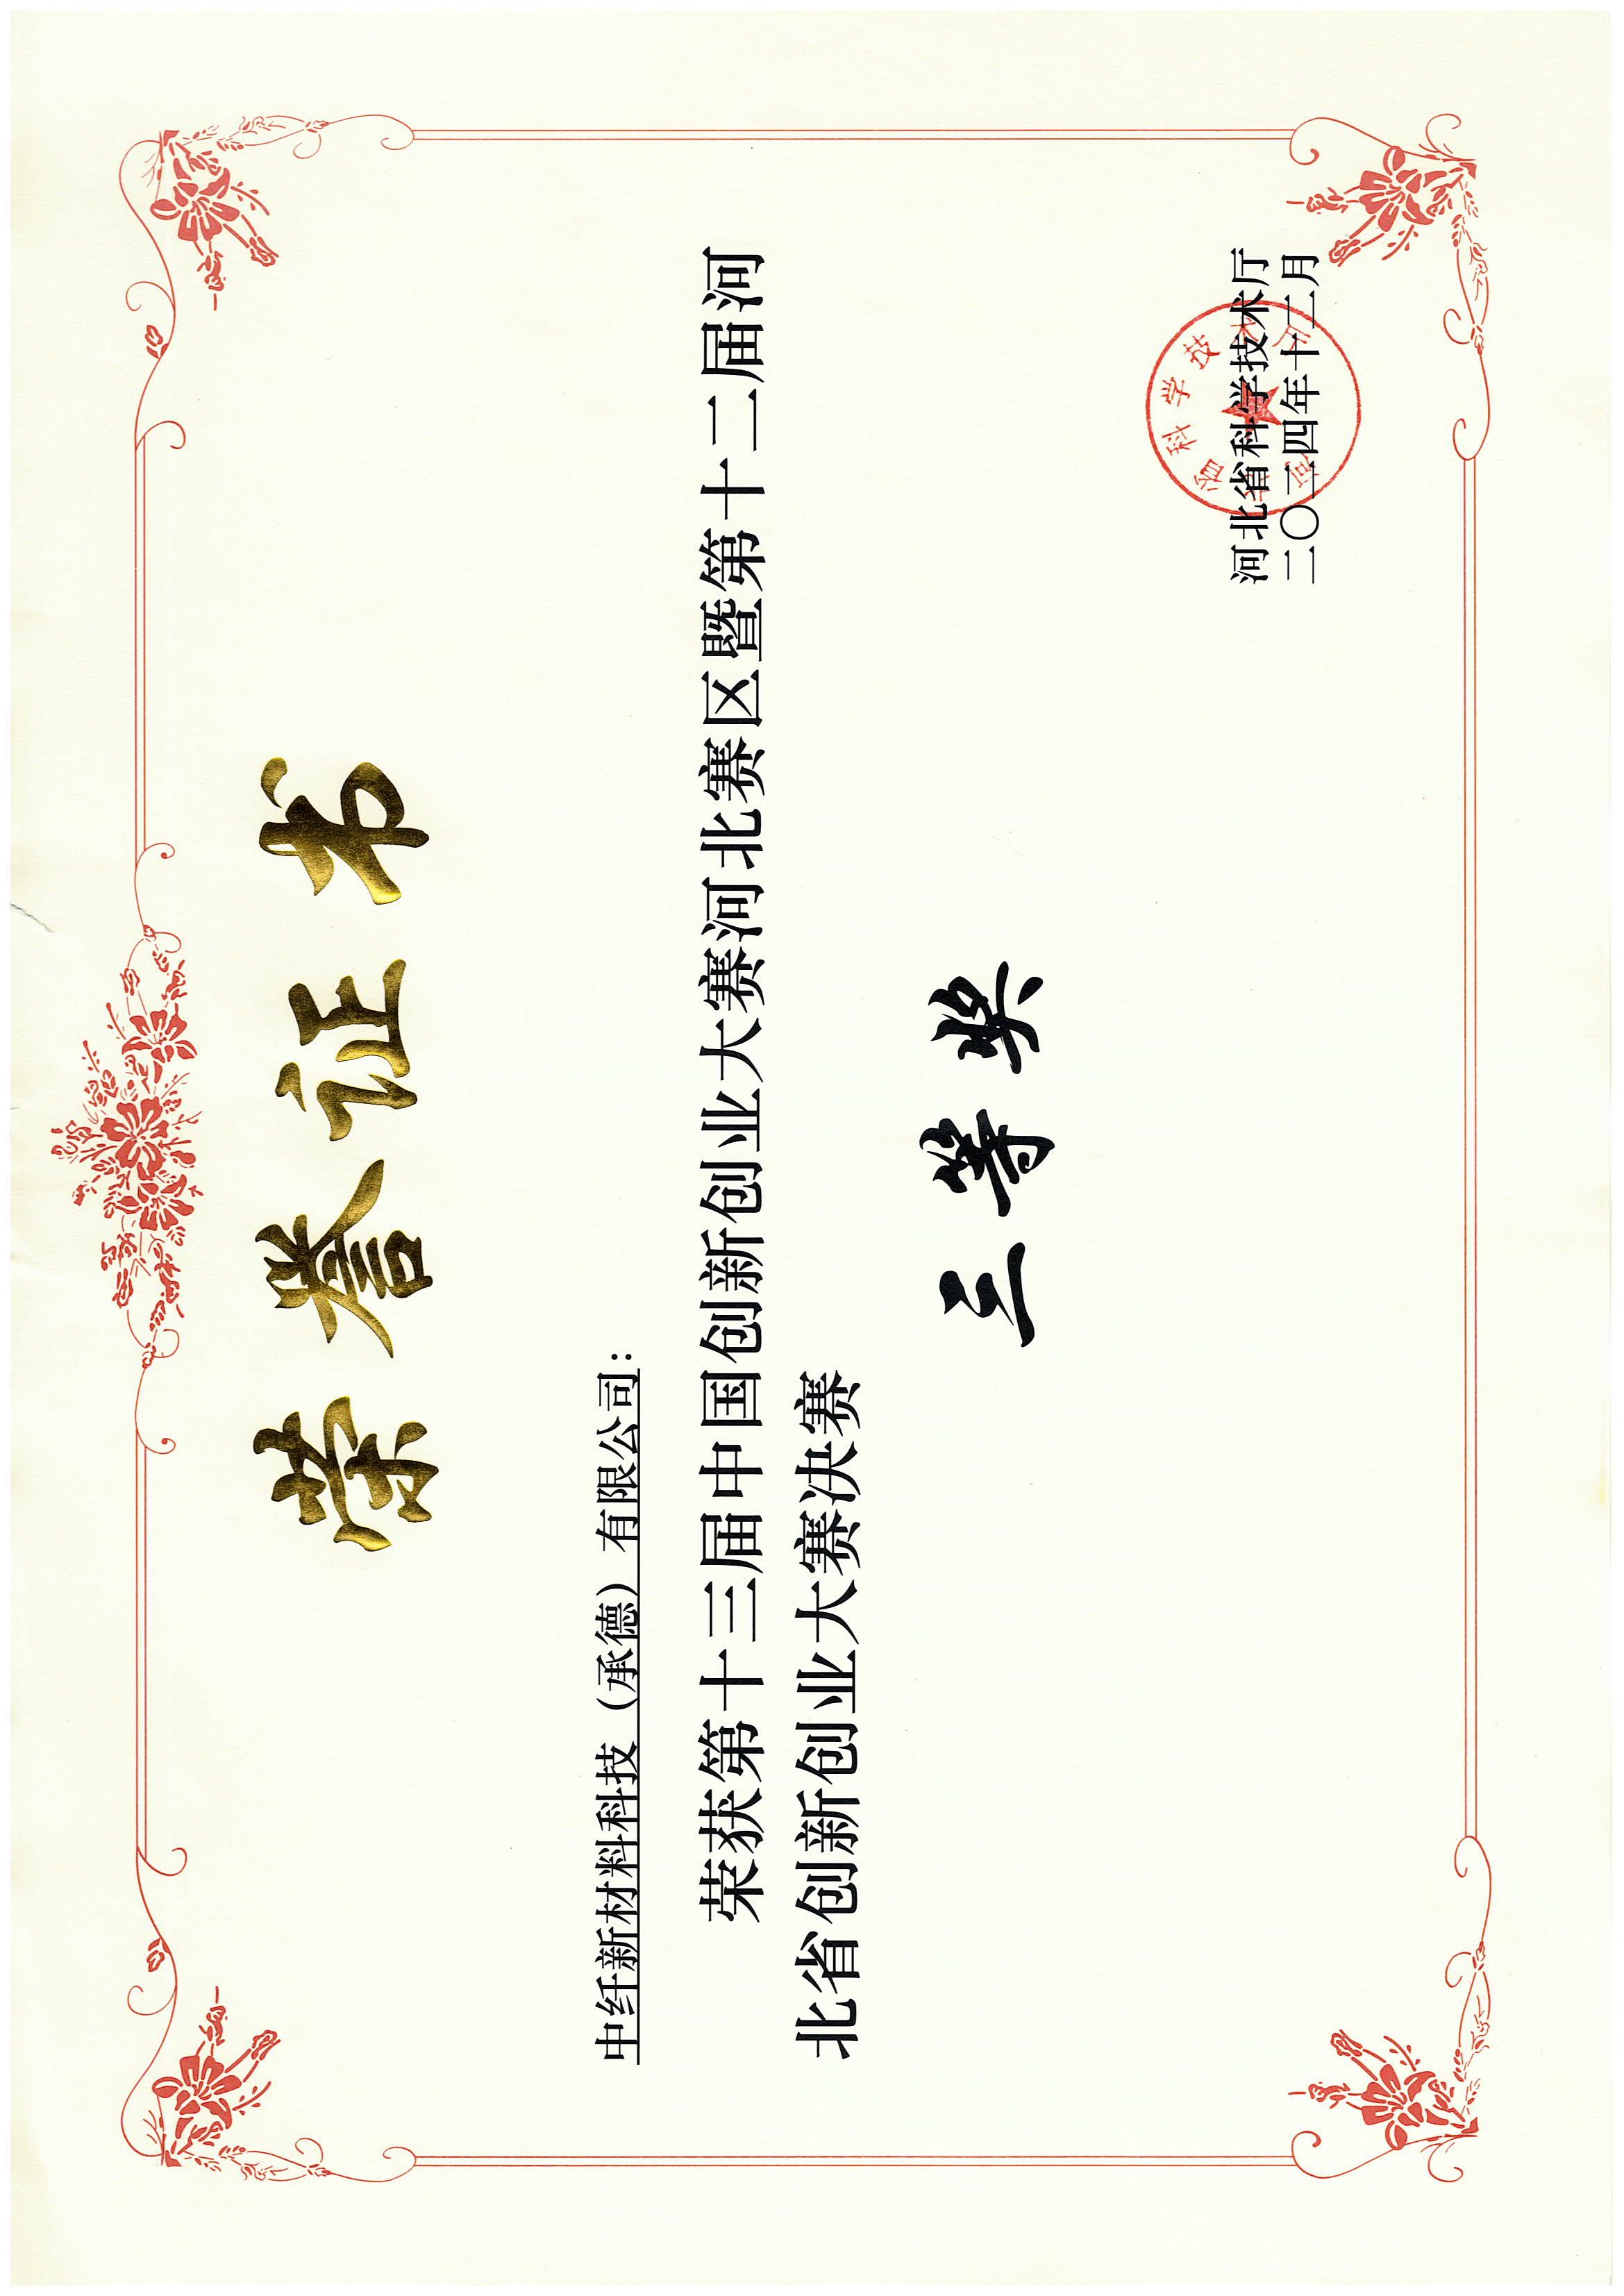 荣誉证书
中纤新材料科技（承德）有限公司：
荣获第十三届中国创新创业大赛河北赛区暨第十二届河
北省创新创业大赛决赛
三等奖
河北省科学技术厅
二〇二四年十二月
河北省科学技术厅